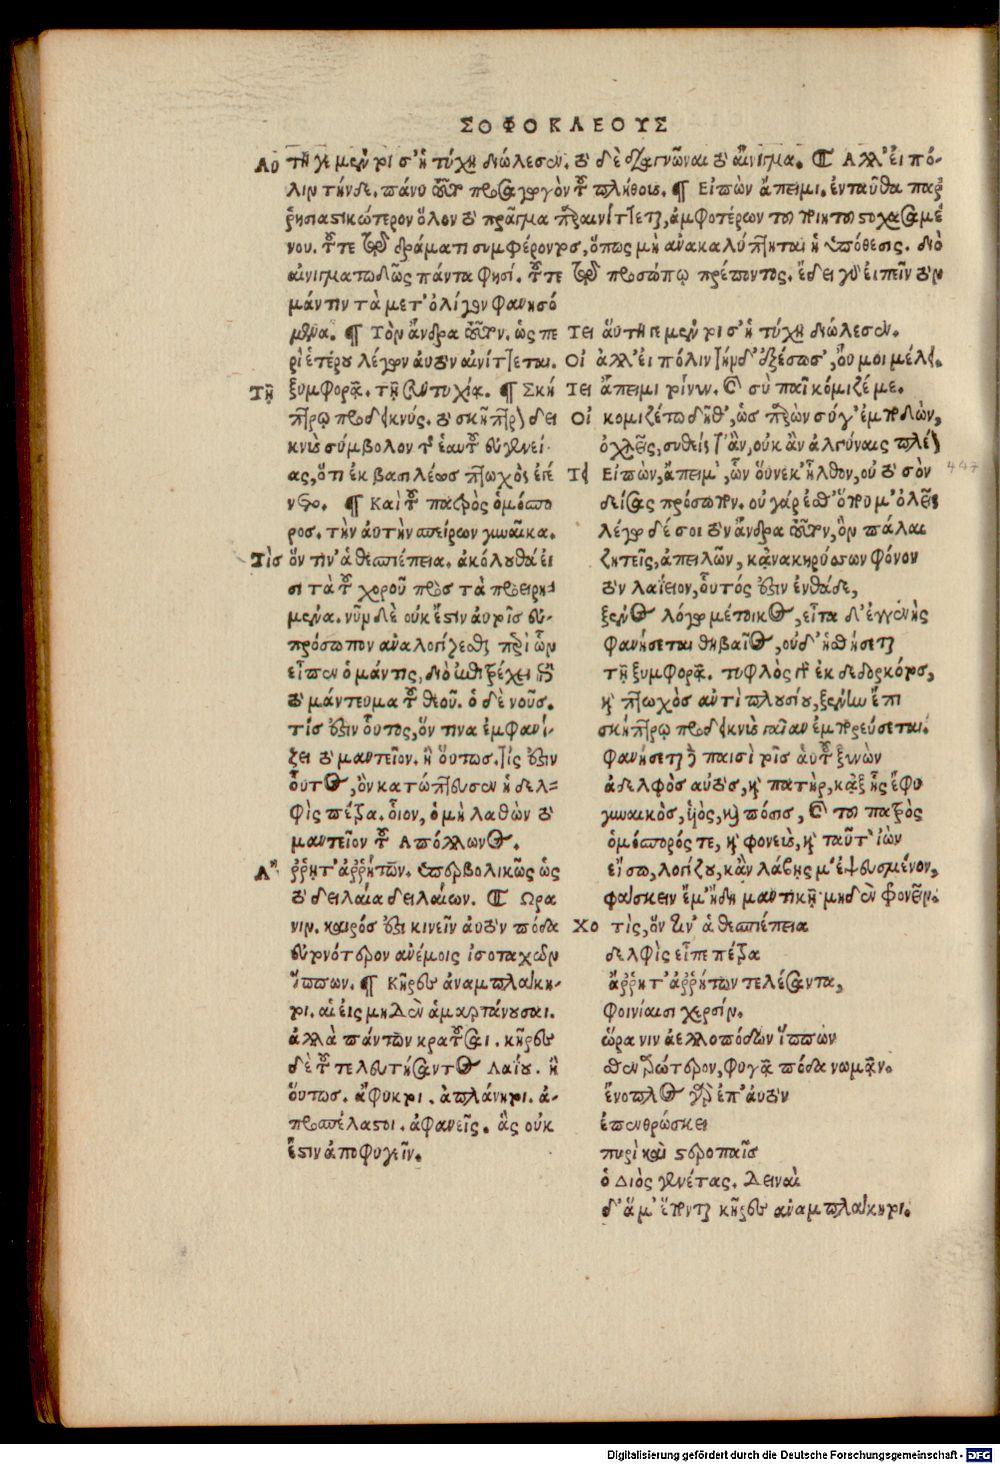 ΣΟΦΟΚΛΕΟΥΣ
Αὐ τή γε μέντοι σ' ἡ τύχη διώλεσεν. τὸ διαγνῶναι τὸ αἴνιγμα. ¶ Ἀλλ' εἰ πό-
λιν τήνδε. πάνυ τοῦτο προσαγωγὸν τοῦ πλήθους. ¶ Εἰπὼν ἄπειμι. ἐνταῦθα παρ
ῥησιαστικώτερον ὅλον τὸ πρᾶγμα παραινίττεται, ἀμφοτέρων τοῦ ποιητοῦ στοχασαμέ
νου. τοῦ τε τῷ δράματι συμφέροντος, ὅπως μὴ ἀνακαλύπτηται ἡ ὑπόθεσις. διὸ
αἰνιγματωδῶς πάντα φησί. τοῦ τε τῷ προσώπῳ πρέποντος. ἔδει γὰρ εἰπεῖν τὸν
μάντιν τὰ μετ' ὀλίγον φανησό
μενα. ¶ Τὸν ἄνδρα τοῦτον. ὡς πε
ρὶ ἑτέρου λέγων αὐτὸν αἰνίττεται.
Τῇ ξυμφορᾷ. τῇ εὐτυχίᾳ. ¶ Σκή
πτρῳ προδεικνύς. τὸ σκῆπτρον δει
κνὺς σύμβολον τῆς ἑαυτοῦ εὐγενεί-
ας, ὅτι ἐκ βασιλέως πτωχὸς ἐγέ
νετο. ¶ Καὶ τοῦ πατρὸς ὁμόσπο
ρος. τὴν αὐτὴν σπείρων γυναῖκα.
Τὶς ὅν τιν' ἁ θεσπιέπεια. ἀκόλουθά εἰ
σι τὰ τοῦ χοροῦ πρὸς τὰ προειρη-
μένα. νῦν δὲ οὐκ ἔστιν αὐτοῖς εὐ-
πρόσωπον ἀναλογίζεσθαι περὶ ὧν
εἶπεν ὁ μάντις, διὸ ἐπιτρέχει ἐπὶ
τὸ μάντευμα τοῦ θεοῦ. ὁ δὲ νοῦς.
τίς ἐστιν οὗτος, ὅν τινα ἐμφανί-
ζει τὸ μαντεῖον. ἢ οὕτως. τίς ἐστιν
οὗτος, ὃν κατώπτευσεν ἡ δελ-
φὶς πέτρα. οἷον, ὁ μὴ λαθὼν τὸ
μαντεῖον τοῦ Ἀπόλλωνος.
Ἄῤῥητ' ἀῤῥήτων. ὑπερβολικῶς ὡς
τὸ δειλαία δειλαίων. ¶ Ὥρα
νιν. καιρός ἐστι κινεῖν αὐτὸν πόδα
εὐτονότερον ἀνέμοις ἰσοταχῶν
ἵππων. ¶ Κῆρες ἀναμπλάκη-
τοι. αἱ εἰς μηδὲν ἁμαρτάνουσαι.
ἀλλὰ πάντων κρατοῦσαι. κῆρες
δὲ τοῦ τελευτήσαντος Λαΐου. ἢ
οὕτως. ἄφυκτοι. ἀπλάνητοι. ἀ-
προσπέλαστοι. ἀφανεῖς. ἃς οὐκ
ἔστιν ἀποφυγεῖν.
Τει αὕτη γε μέντοι σ' ἡ τύχη διώλεσεν.
Οἰ ἀλλ' εἰ πόλιν τήνδ' ἐξέσωσ', οὔ μοι μέλει.
Τει ἄπειμι τοίνυν. καὶ σὺ παῖ κόμιζέ με.
Οἰ κομιζέτω δῆθ', ὡς παρὼν σύ γ' ἐμποδὼν,
ὀχλεῖς, συθείς τ' ἂν, οὐκ ἂν ἀλγύναις πλέον
Τει Εἰπὼν, ἄπειμ', ὧν οὕνεκ' ἦλθον, οὐ τὸ σὸν 447
δείσας πρόσωπον. οὐ γάρ ἐσθ' ὅπου μ' ὀλεῖς
λέγω δέ σοι τὸν ἄνδρα τοῦτον, ὃν πάλαι
ζητεῖς, ἀπειλῶν, κἀνακηρύσσων φόνον
τὸν λαΐειον, οὗτός ἐστιν ἐνθάδε,
ξένος λόγῳ μέτοικος, εἶτα δ' ἐγγενὴς
φανήσεται θηβαῖος, οὐδ' ἡσθήσεται
τῇ ξυμφορᾷ. τυφλὸς γὰρ ἐκ δεδορκότος,
καὶ πτωχὸς ἀντὶ πλουσίου, ξένην ἔπι
σκήπτρῳ προδεικνὺς γαῖαν ἐμπορεύσεται.
φανήσεται δὲ παισὶ τοῖς αὑτοῦ ξυνὼν
ἀδελφὸς αὐτὸς, καὶ πατὴρ, κἀξ ἧς ἔφυ
γυναικὸς, ὑιὸς, καὶ πόσις, καὶ τοῦ πατρὸς
ὁμόσπορός τε, καὶ φονεὺς, καὶ ταῦτ' ἰὼν
εἴσω, λογίζου, κἂν λάβῃς μ' ἐψευσμένον,
φάσκειν ἔμ' ἤδη μαντικῇ μηδὲν φρονεῖν.
Χο τίς, ὅν τιν' ἁ θεσπιέπεια
δελφὶς εἶπε πέτρα
ἄῤῥητ' ἀῤῥήτων τελέσαντα,
φοινίαισι χερσίν.
ὥρα νιν ἀελλοπόδων ἵππων
σθεναρώτερον, φυγᾷ πόδα νωμᾷν.
ἔνοπλος γὰρ ἐπ' αὐτὸν
ἐπενθρώσκει
πυρὶ καὶ στεροπαῖς
ὁ Διὸς γενέτας. Δειναὶ
δ' ἅμ' ἕπονται κῆρες ἀναμπλάκητοι.
Digitalisierung gefördert durch die Deutsche Forschungsgemeinschaft - DFG